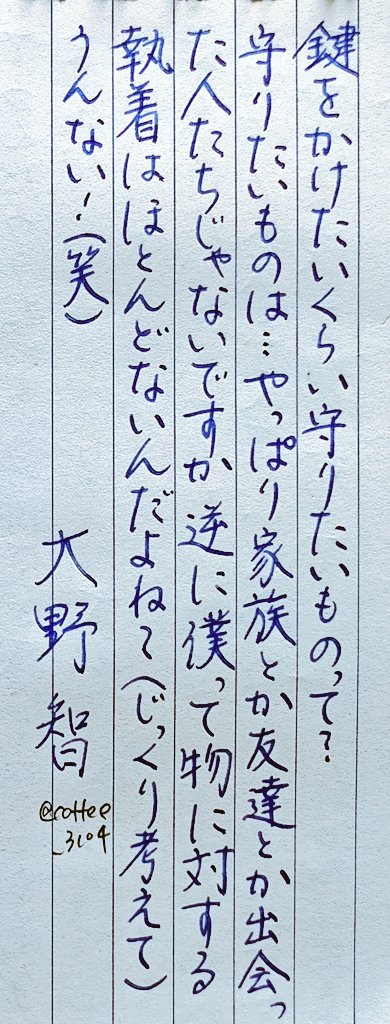 鍵をかけたいくらい守りたいものって?
守りたいものは…やっぱり家族とか友達とか出会っ
た人たちじゃないですか逆に僕って物に対する
執着はほとんどないんだよねて(じっくり考えて)
うんない!(笑)
大野智
@rottee
_3104